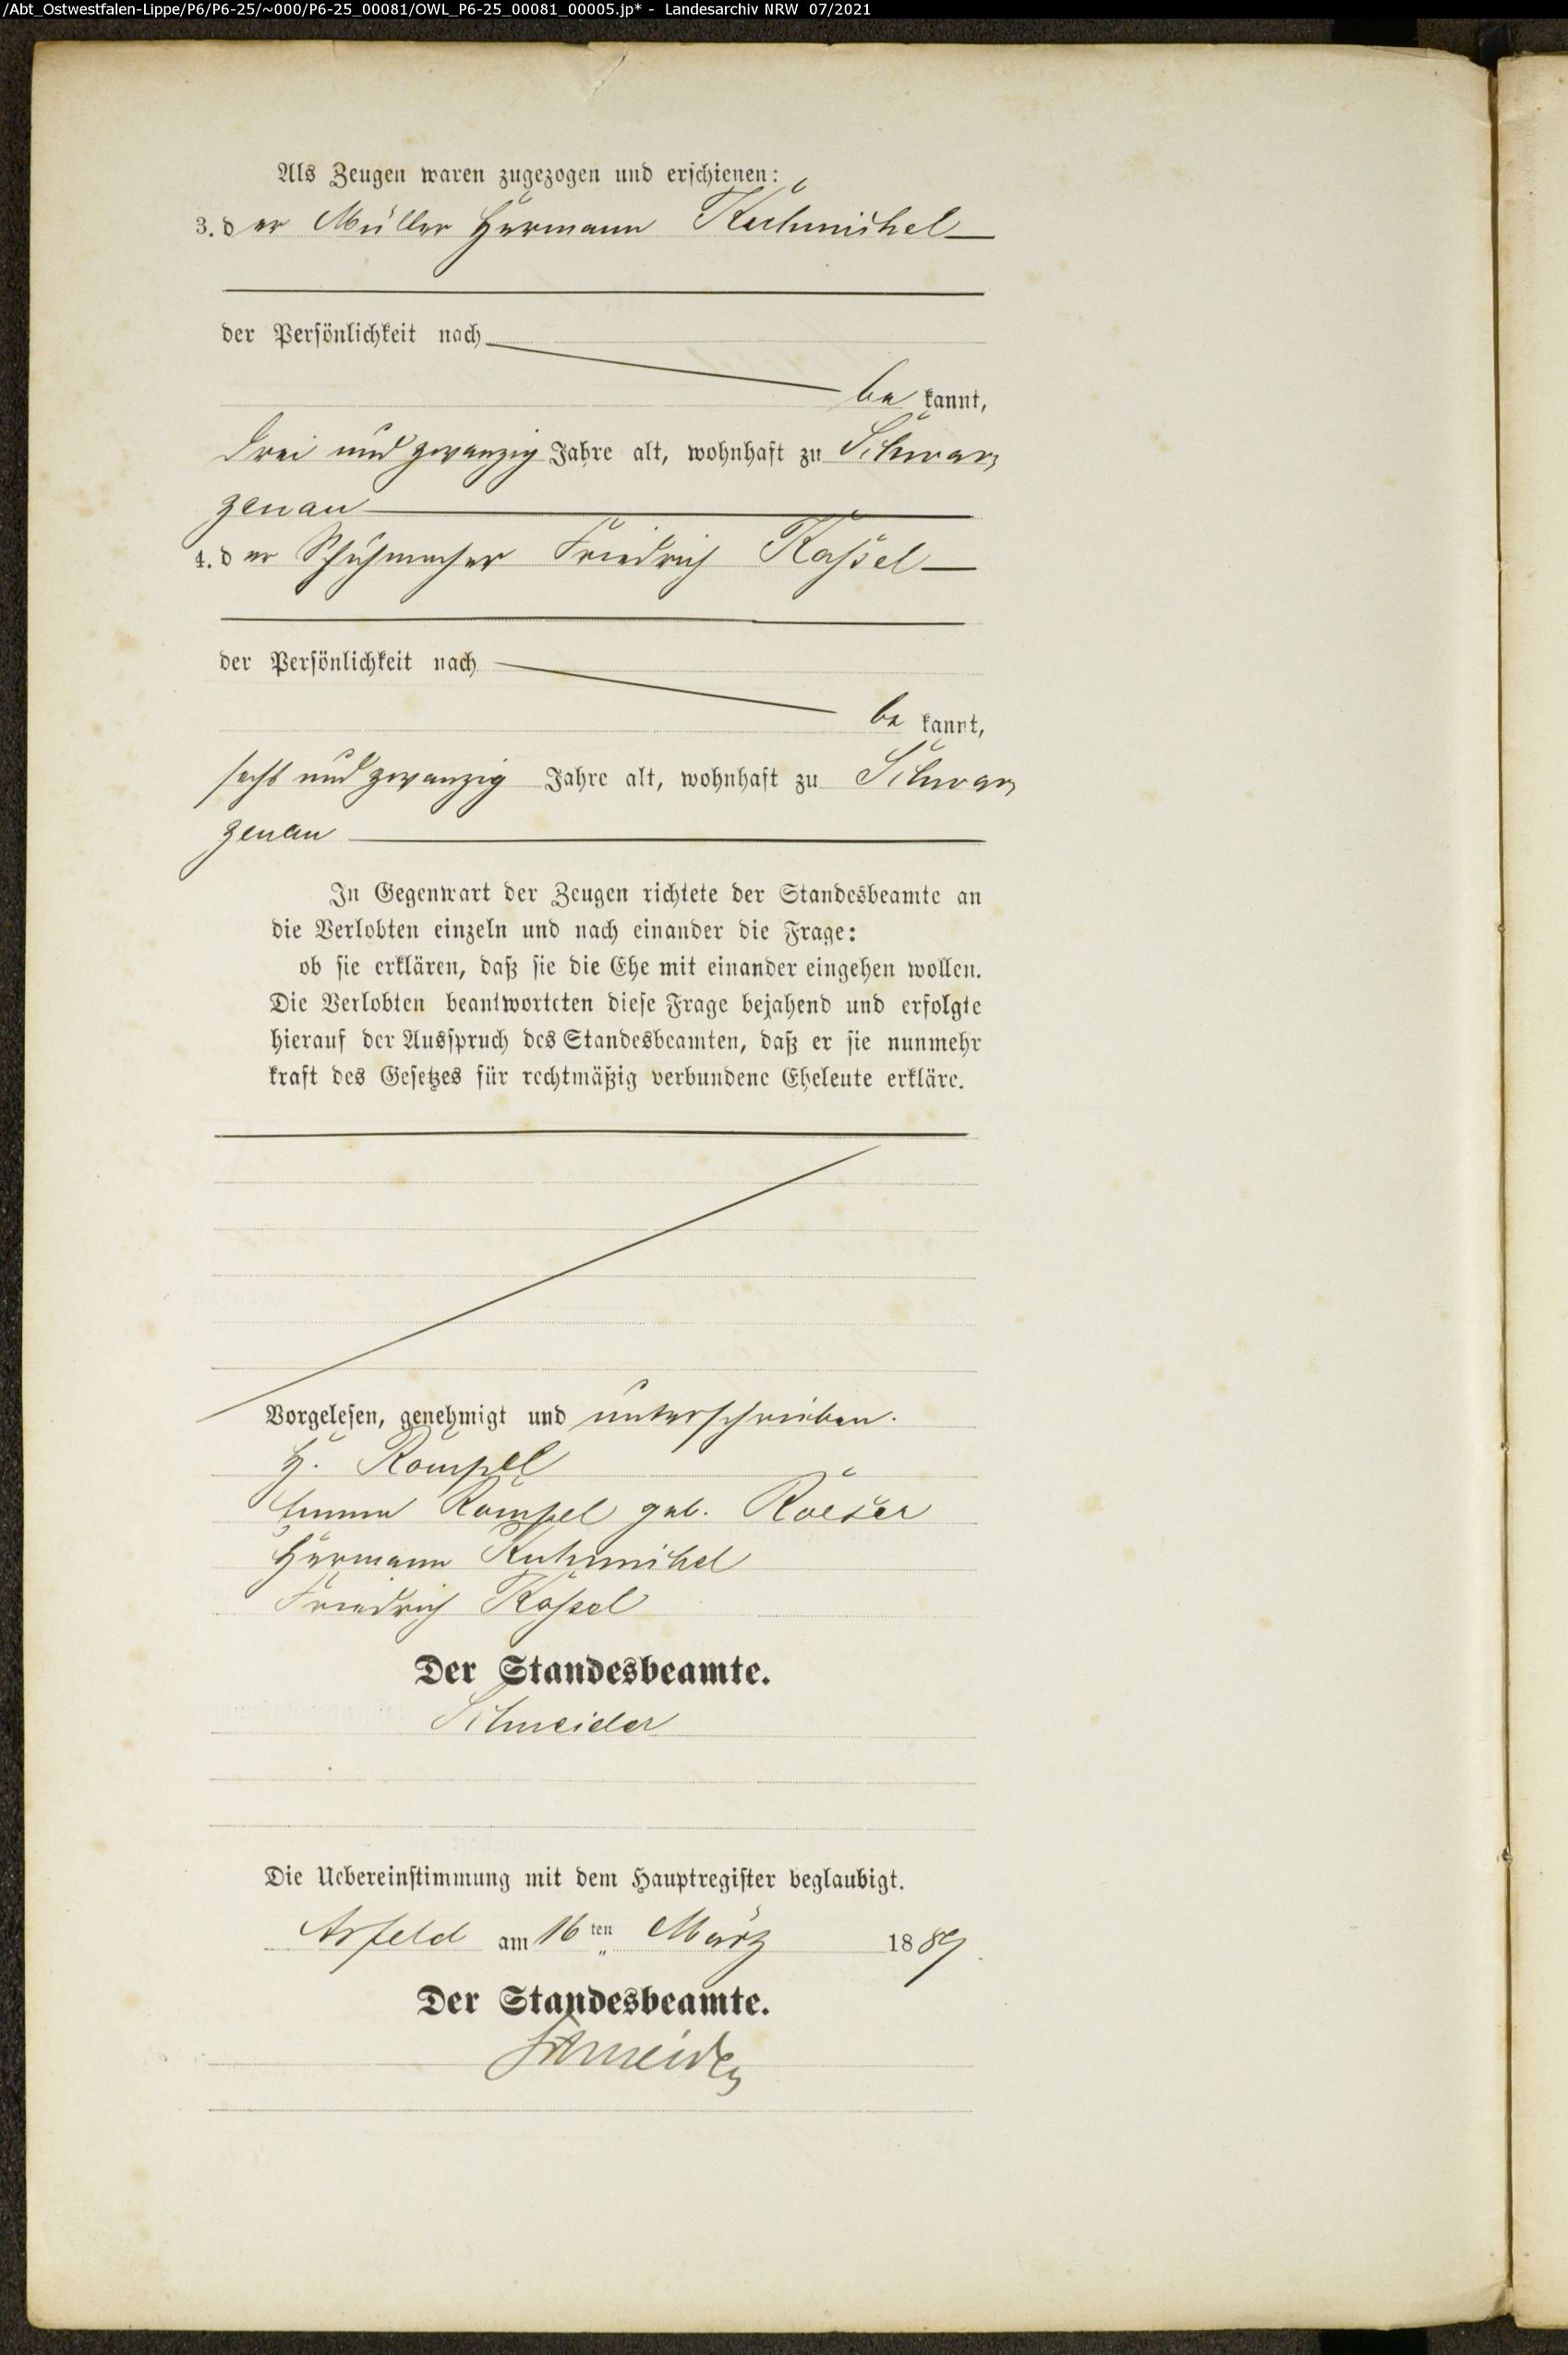 /Abt_Ostwestfalen-Lippe/P6/P6-25/~000/P6-25_00081/OWL_P6-25_00081_00005.jp* - Landesarchiv NRW 07/2021
Als Zeugen waren zugezogen und erschienen:
3. der Müller Hermann Kuhmichel
der Persönlichkeit nach
bekannt,
drei und zwanzig Jahre alt, wohnhaft zu Schwar
zenau
4. der Schuhmacher Friedrich Kassel
der Persönlichkeit nach
bekannt,
sechs und zwanzig Jahre alt, wohnhaft zu Schwar
zenau
In Gegenwart der Zeugen richtete der Standesbeamte an
die Verlobten einzeln und nach einander die Frage:
ob sie erklären, daß sie die Ehe mit einander eingehen wollen.
Die Verlobten beantworteten diese Frage bejahend und erfolgte
hierauf der Ausspruch des Standesbeamten, daß er sie nunmehr
kraft des Gesetzes für rechtmäßig verbundene Eheleute erkläre.
Vorgelesen, genehmigt und unterschrieben.
H. Römpel
Römpel geb. Roeser
Hermann Kuhmichel
Friedrich Kassel
Der Standesbeamte.
Schneider
Die Uebereinstimmung mit dem Hauptregister beglaubigt.
Arfeld am 16 ten März 1889.
Der Standesbeamte.
Schneider